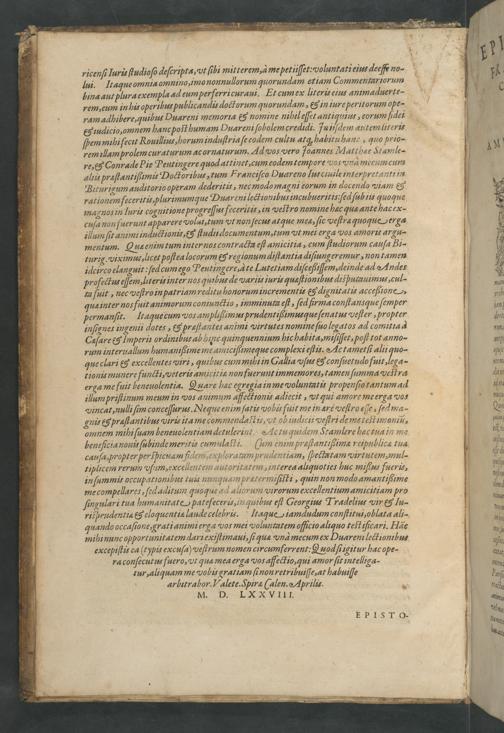 ricensi Iuris studioso descripta, vt sibi mitterem, à me petijsset: voluntati eius deesse no-
lui. Itaque omnia omnino, imo nonnullorum quorundam etiam Commentariorum
bina aut plura exempla ad eum perferri curaui. Et cum ex literis eius animaduerte-
rem, eum in his operibus publicandis doctorum quorundam, & in iure peritorum ope-
ram adhibere, quibus Duareni memoria & nomine nihil esset antiquius, eorum fidei
& iudicio, omnem hanc posthumam Duareni sobolem credidi. Ijs idem autem literis
spem mihi fecit Rouillius, horum industria se eodem cultu atq, habitu hanc, quo prio-
rem illam prolem curaturum ac ornaturum. Ad vos vero Joannes Matthæe Stamle-
re, & Conrade Pie Peutingere quod attinet, cum eodem tempore vos vnà mecum cum
alijs præstantissimis Doctoribus, tum Francisco Duareno Ius ciuile interpretanti in
Biturigum auditorio operam dederitis, nec modo magni eorum in docendo viam &
rationem feceritis, plurimumque Duareni lectionibus incubueritis: sed sub ijs quoque
magnos in Iuris cognitione progressus feceritis, in vestro nomine hæc quæ ante hac ex-
cusa non fuerunt apparere volui, tum vt non secus atque mea, sic vestra quoque erga
illum sit animi inductionis, & studij documentum, tum vt mei erga vos amoris argu-
mentum. Quæ enim tum inter nos contracta est amicitia, cum studiorum causa Bi-
turig. viximus, licet postea locorum & regionum distantia disiungeremur, non tamen
idcirco elanguit: sed cum ego Peutingere, à te Lutetiam discessissem, deinde ad Andes
profectus essem, literis inter nos quibus de varijs iuris quæstionibus disputauimus, cul-
ta fuit, nec vestro in patriam reditu honorum incrementis & dignitatis accessione,
quæ inter nos fuit animorum coniunctio, imminuta est, sed firma constansque semper
permansit. Itaque cum vos amplissimus prudentissimusque senatus vester, propter
insignes ingenij dotes, & præstantes animi virtutes nomine suo legatos ad comitia à
Cæsare & Imperij ordinibus ab hinc quinquennium hic habita, misisset, post tot anno-
rum interuallum humanissime me amicissimeque complexi estis. Ac tametsi alij quo-
que clari & excellentes viri, quibus cum mihi in Gallia vsus & consuetudo fuit, lega-
tionis munere functi, veteris amicitiæ non fuerunt immemores, tamen summa vestra
erga me fuit beneuolentia. Quare hæc egregia in me voluntatis propensio tantum ad
illum pristinum meum in vos animum affectionis adiecit, vt qui amore me erga vos
vincat, nulli sim concessurus. Neque enim satis vobis fuit me in ære vestro esse, sed ma-
gnis & præstantibus viris ita me commendastis, vt ob iudicij vestri de me testimoniũ,
omnem mihi suam beneuolentiam detulerint. Ac tu quidem Stamlere hæc tua in me
beneficia nouis subinde meritis cumulasti. Cum enim præstantissima reipublicæ tuæ
causa, propter perspicuam fidem, exploratam prudentiam, spectatam virtutem, mul-
tiplicem rerum vsum, excellentem autoritatem, interea aliquoties huc missus fueris,
in summis occupationibus tuis nunquam prætermisisti, quin non modo amantissime
me compellares, sed aditum quoque ad aliorum virorum excellentium amicitiam pro
singulari tua humanitate patefeceris, in quibus est Georgius Tradelius vir & Iu-
risprudentia & eloquentiæ laude celebris. Itaque iamdudum constitui, oblata ali-
quando occasione, grati animi erga vos mei voluntatem officio aliquo testificari. Hãc
mihi nunc opportunitatem dari existimaui, si quæ vnà mecum ex Duareni lectionibus
excepistis ea (typis excusa) vestrum nomen circumferrent: Quod si igitur hac ope-
ra consecutus fuero, vt quæ mea erga vos affectio, qui amor sit intelliga-
tur, aliquam me vobis gratiam si non retribuisse, at habuisse
arbitrabor. Valete. Spiræ Calen. Aprilis.
M. D. LXXVIII.
EPISTO-